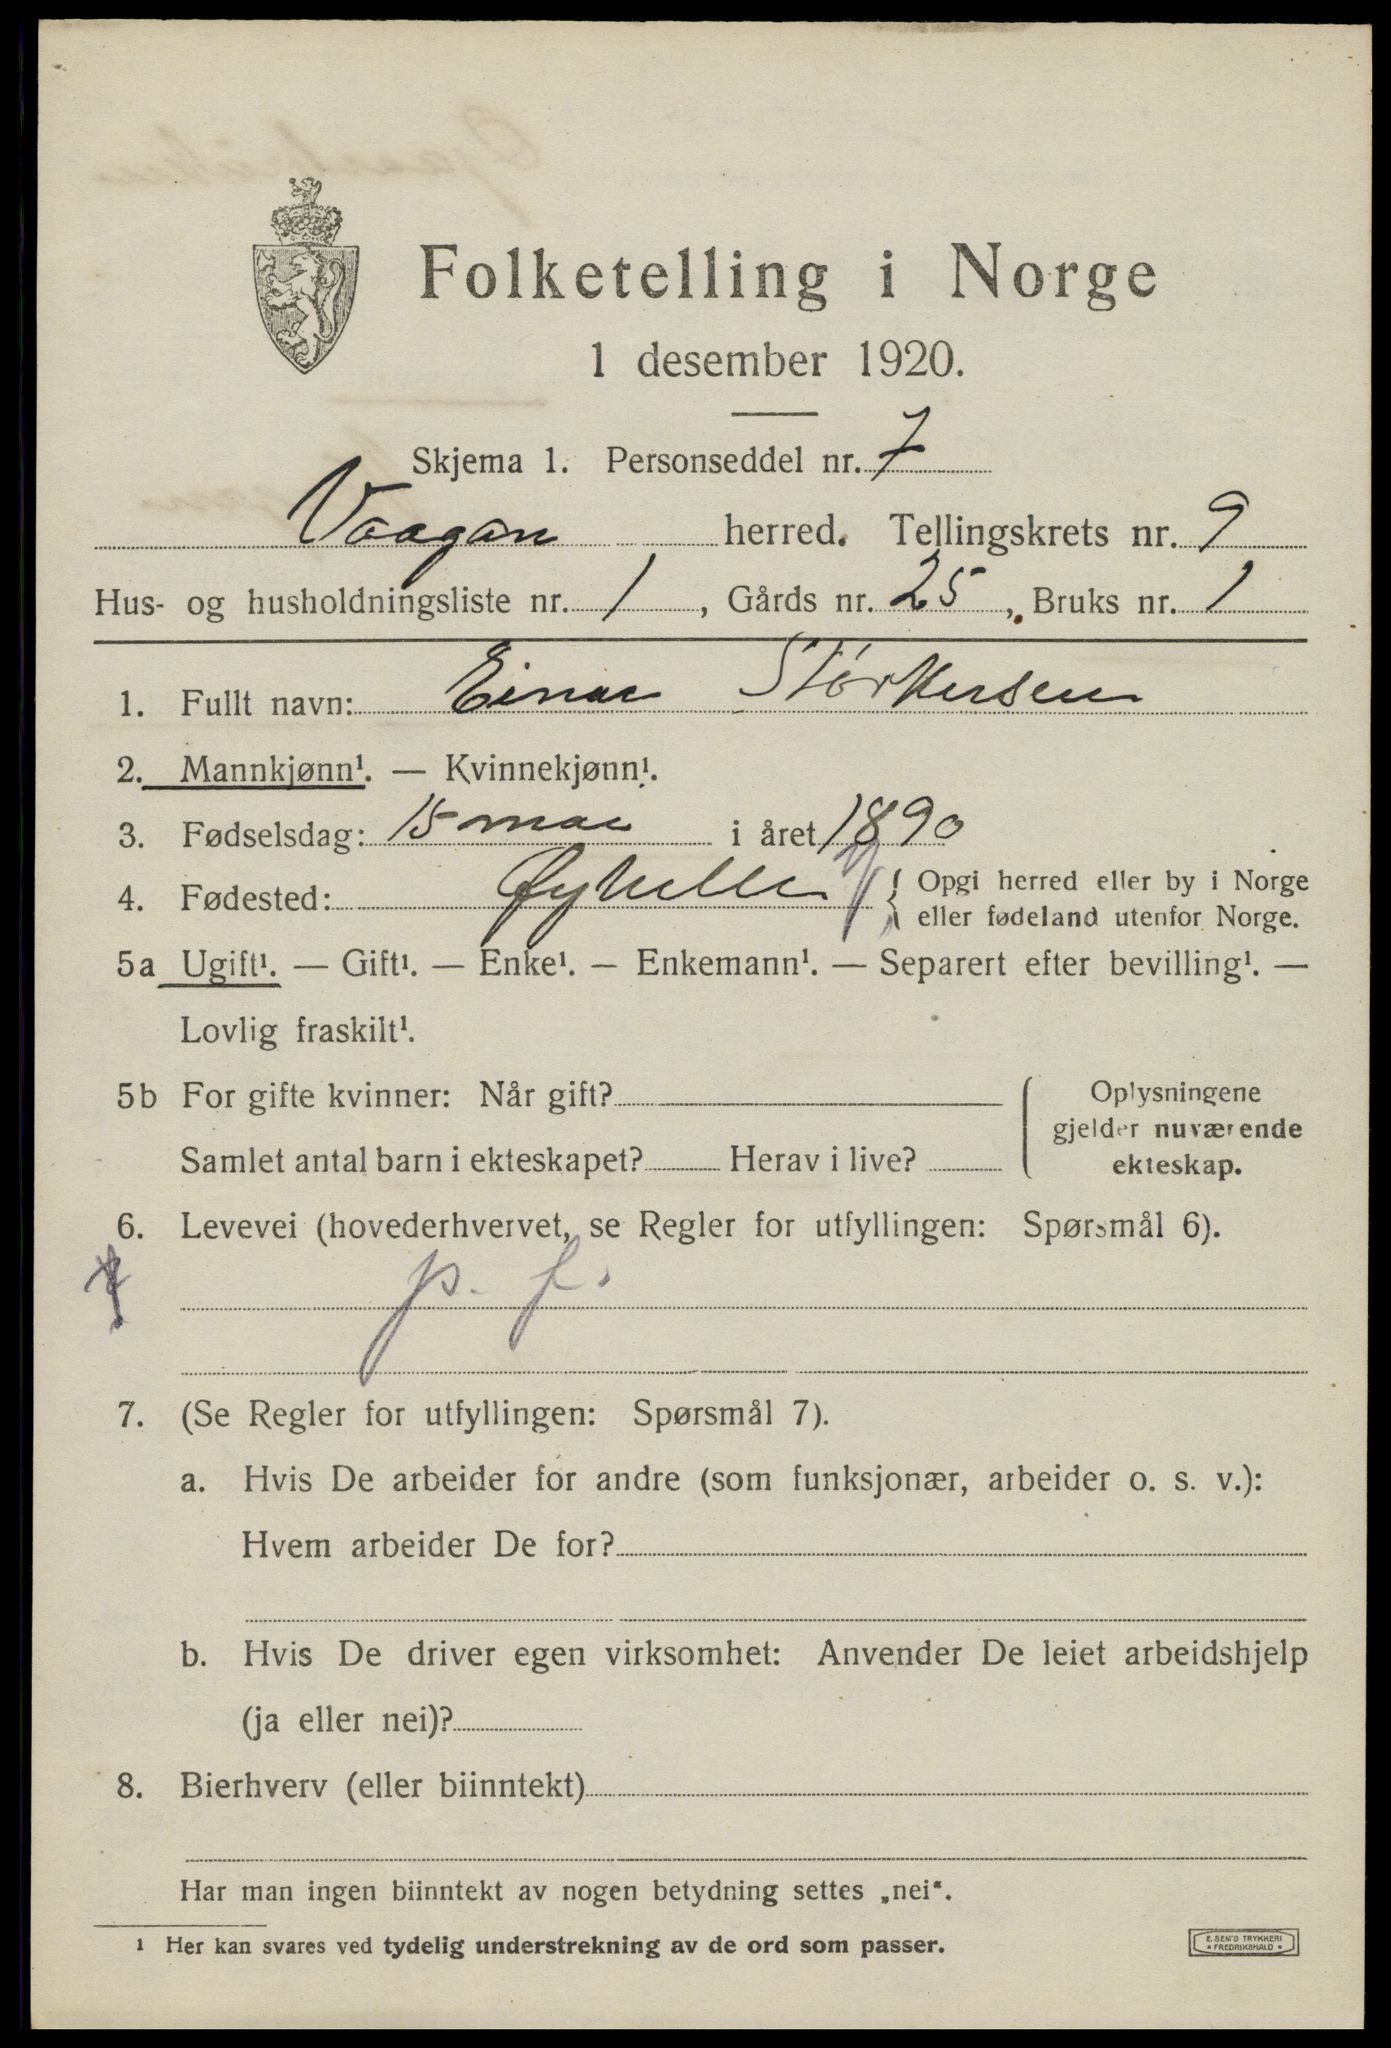 Folketelling i Norge
1 desember 1920.
Skjema 1. Personseddel nr. 7
Vaagan herred. Tellingskrets nr. 9
Hus- og husholdningsliste nr. 1, Gårds nr. 25, Bruks nr. 1
1. Fullt navn: Einar Størkersen
2. Mannkjønn¹. — Kvinnekjønn¹.
3. Fødselsdag: 15 mai i året 1890
4. Fødested: { Opgi herred eller by i Norge
eller fødeland utenfor Norge.
5a Ugift¹. — Gift¹. — Enke¹. — Enkemann¹. — Separert efter bevilling¹. —
Lovlig fraskilt¹.
5b For gifte kvinner: Når gift?
Samlet antal barn i ekteskapet? Herav i live?
{ Oplysningene
gjelder nuværende
ekteskap.
6. Levevei (hovederhvervet, se Regler for utfyllingen: Spørsmål 6).
p. f.
7. (Se Regler for utfyllingen: Spørsmål 7).
a. Hvis De arbeider for andre (som funksjonær, arbeider o. s. v.):
Hvem arbeider De for?
b. Hvis De driver egen virksomhet: Anvender De leiet arbeidshjelp
(ja eller nei)?
8. Bierhverv (eller biinntekt)
Har man ingen biinntekt av nogen betydning settes „nei“.
¹ Her kan svares ved tydelig understrekning av de ord som passer.
E. SEM'S TRYKKERI
FREDRIKSHALD